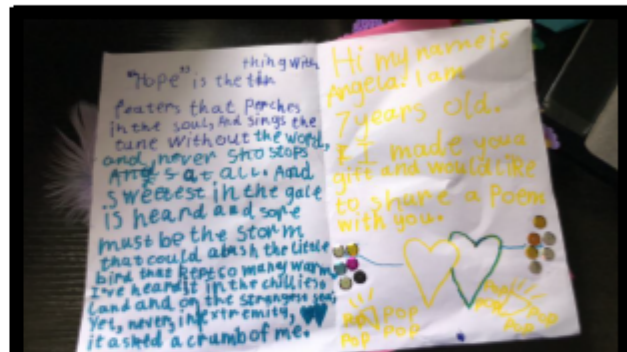 thing with
"Hope" is the
featers that Perches
in the soul, And sings the
tune without the word,
and, never stops
at all. And
sweetest in the gale
is heard and sore
must be the storm
that could abash the little
bird that kept so many warm
I've heard it in the chillies
land and on the strangest sea,
Yet, never, in extremity,
it asked a crumb of me.
Hi my name is
Angela. I am
7 years old.
I made you a
gift and would like
to share a Poem
with you.
Pop Pop
Pop Pop
Pop Pop
Pop